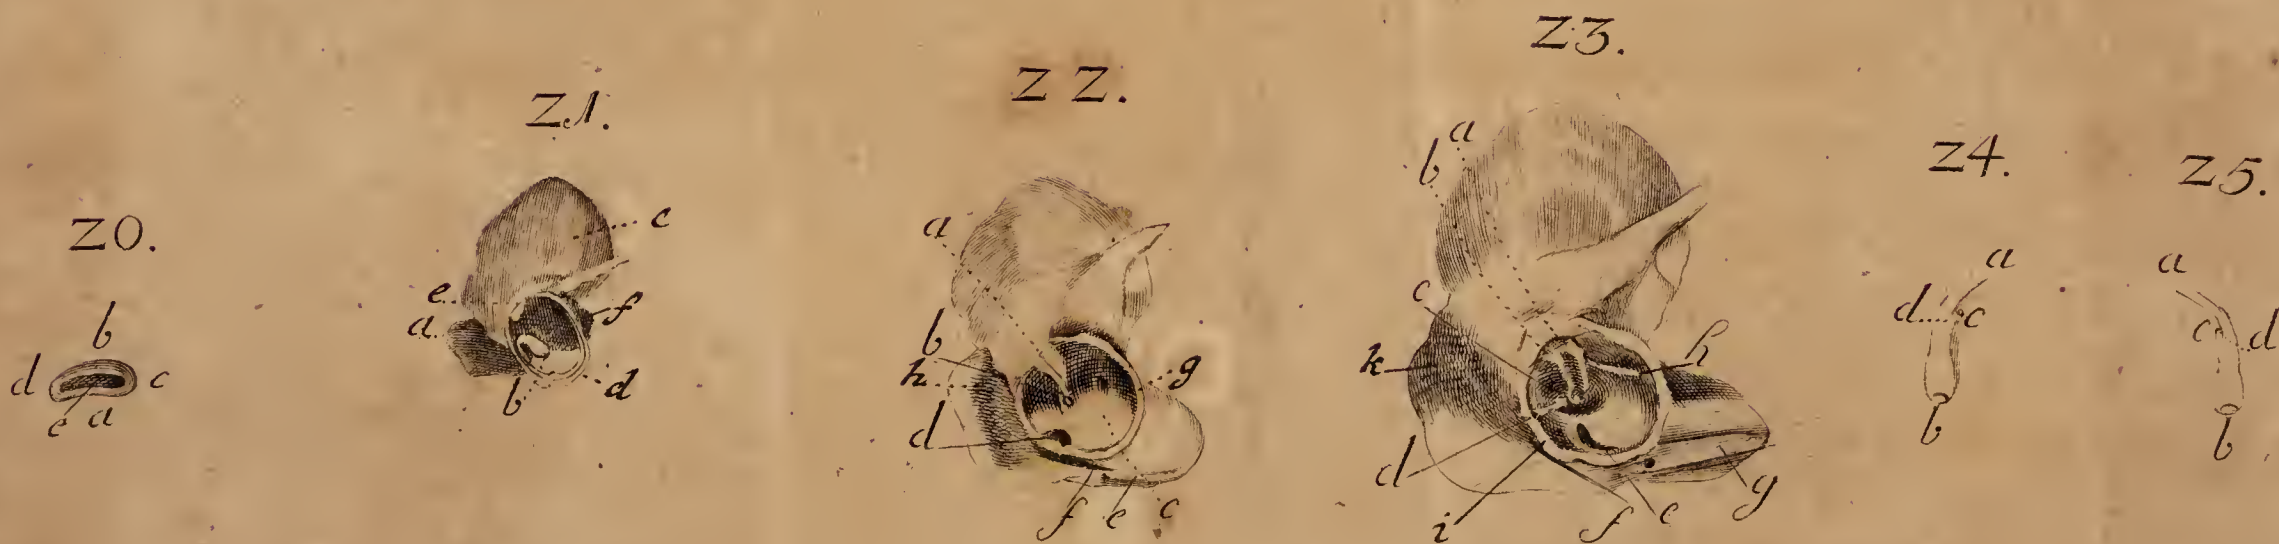 Z0.
b
d c
e a
Z1.
c
e f
a
b d
Z Z.
a
b
h g
d
f e c
Z3.
a
b
c
k h
d
i f e g
Z4.
a
d c
b
Z5.
a
c d
b